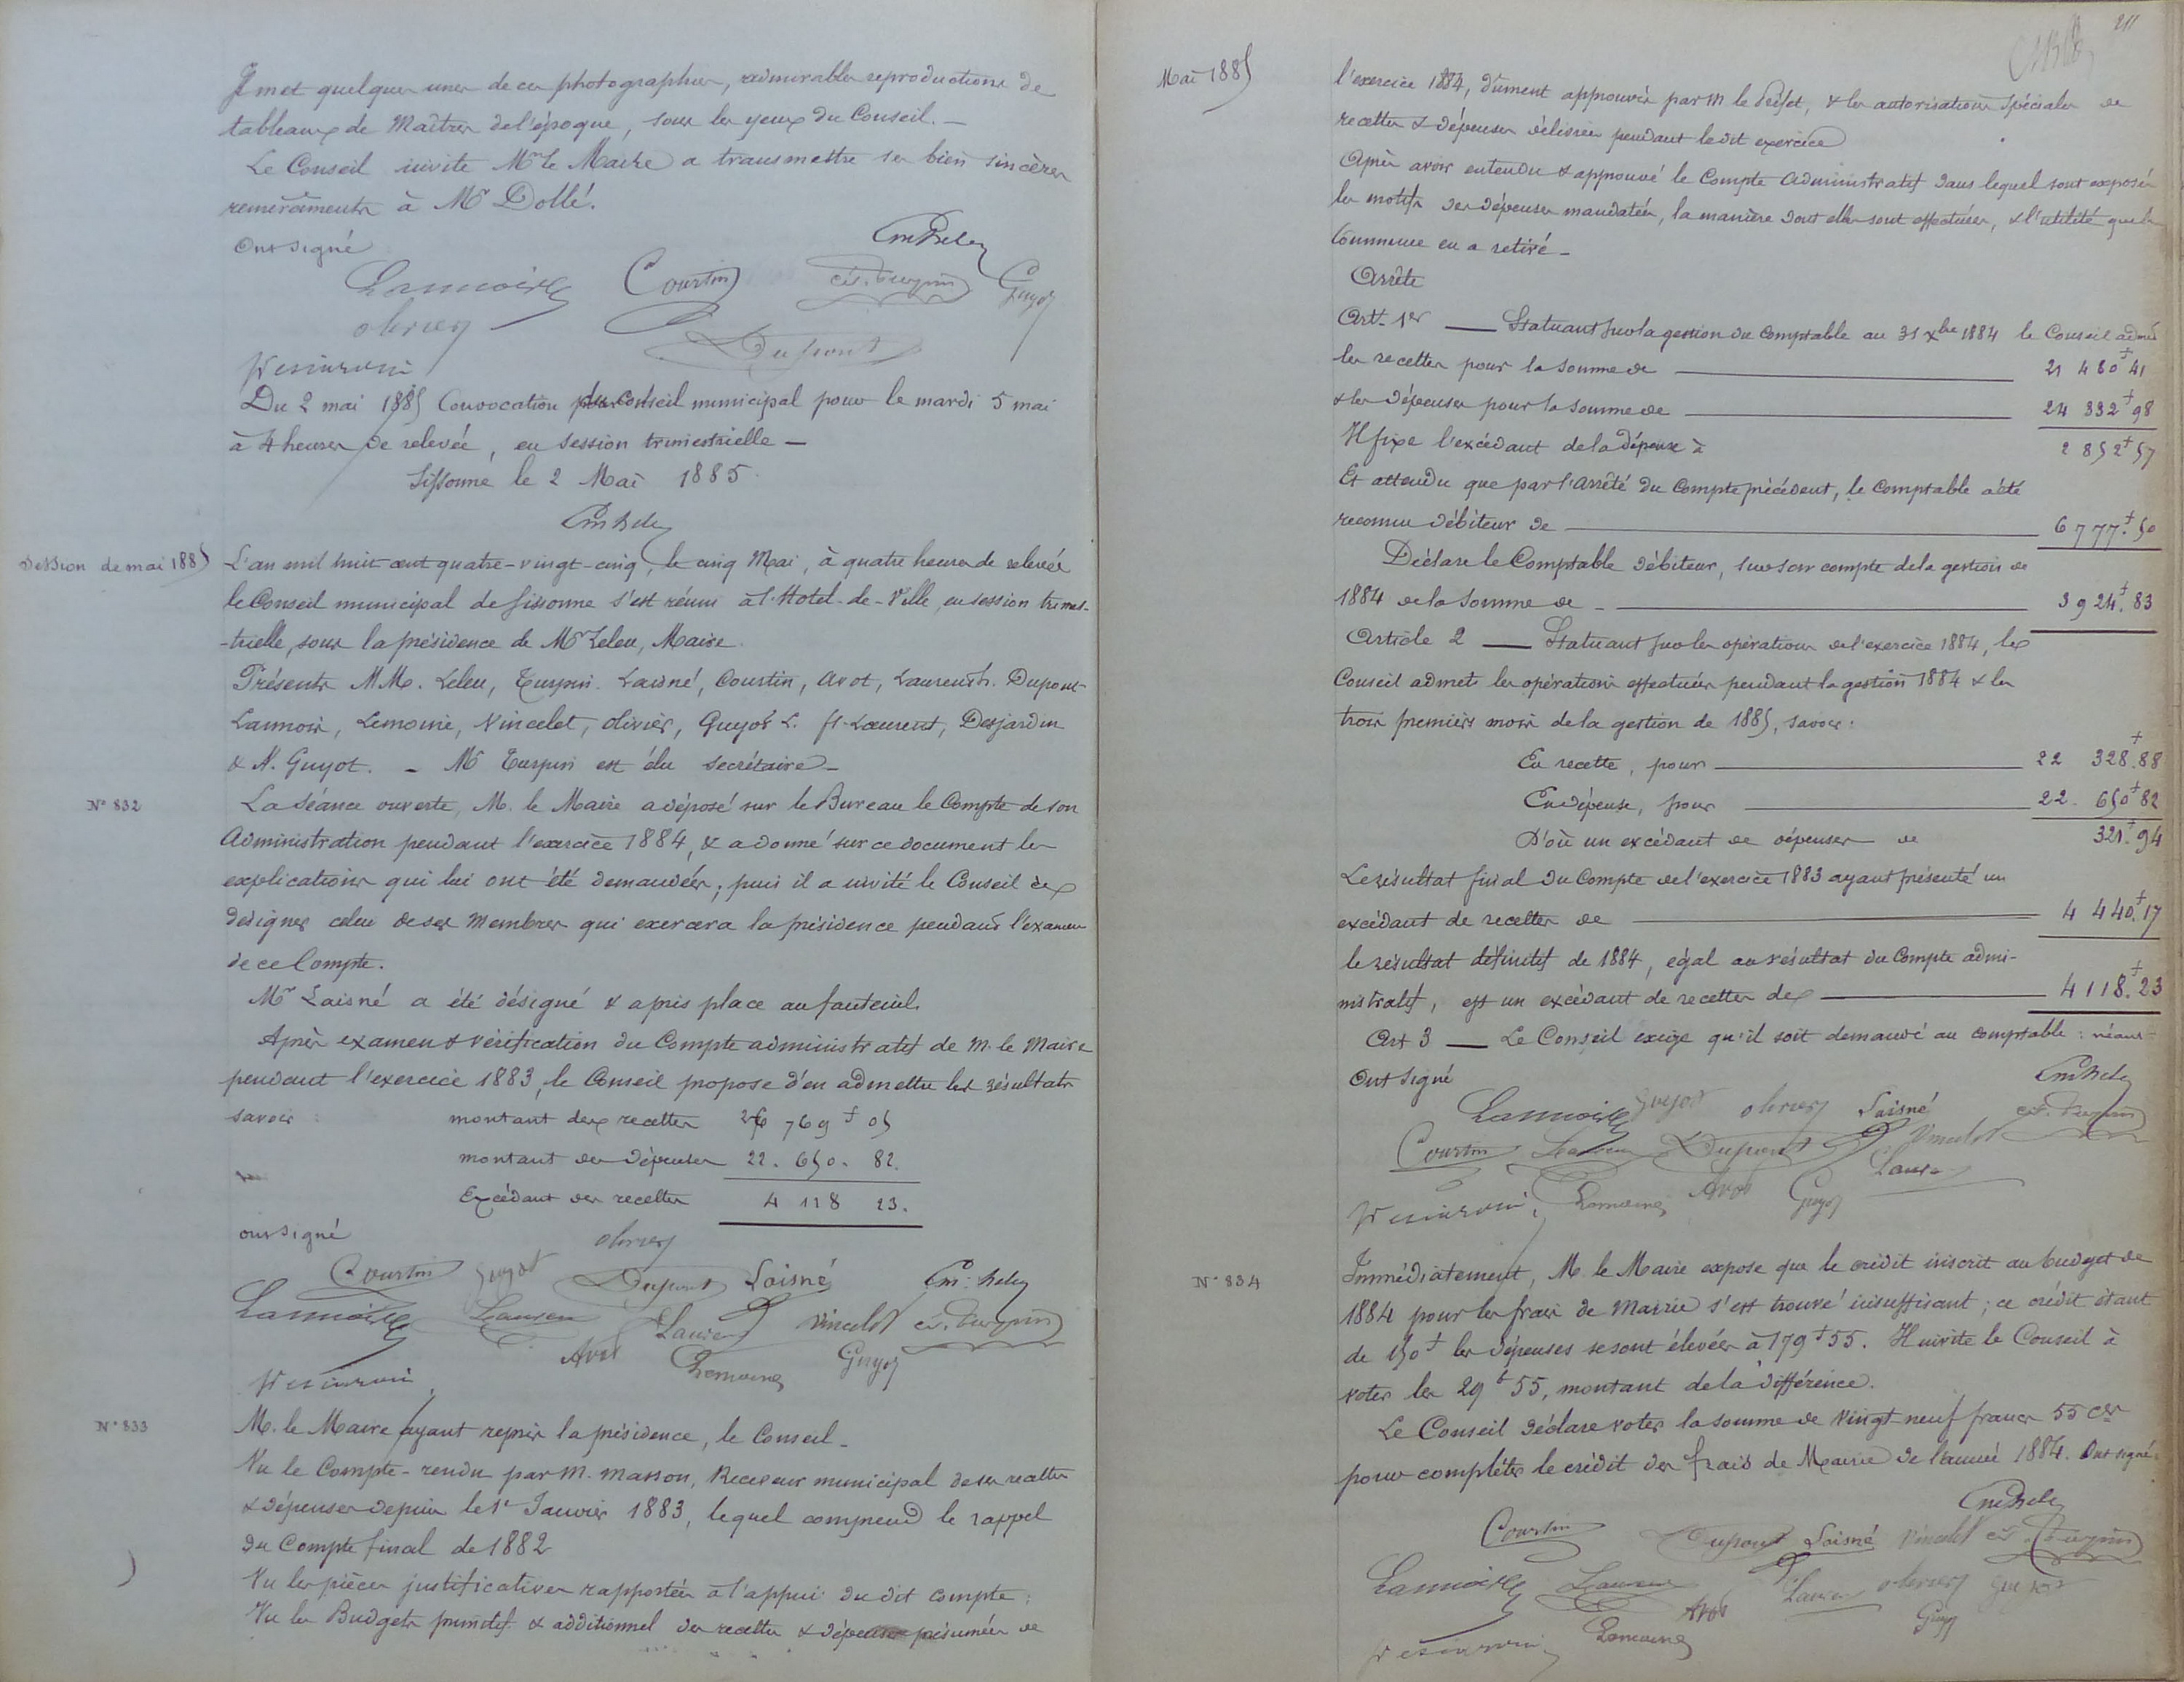 Il met quelques unes de ces photographies, admirables reproductions de
tableaux de Maîtres de l'époque, sous les yeux du Conseil. —
Le Conseil invite Mr le Maire a transmettre ses bien sincères
remerciments à Mr Dollé.
Ont signé
Lannois Courtin Cés. Turpin Guyot
Olivier
Dupont
Du 2 mai 1885 Convocation du Conseil municipal pour le mardi 5 mai
à 4 heures de relevée, en session trimestrielle —
Sissonne le 2 Mai 1885.
Session de mai 1885
L'an mil huit cent quatre-vingt-cinq, le cinq Mai, à quatre heures de relevée
le Conseil municipal de Sissonne s'est réuni à l'Hotel-de-Ville, en session trimes-
-trielle, sous la présidence de Mr Leleu, Maire.
Présents MM. Leleu, Turpin, Laisné, Courtin, Avot, Laurent h. Dupont-
Lannois, Lemoine, Vincelet, Olivier, Guyot L. ft. Laurent, Desjardin
& N. Guyot. — Mr Turpin est élu secrétaire —
N° 832
La Séance ouverte, M. le Maire a déposé sur le Bureau le Compte de son
Administration pendant l'exercice 1884, & a donné sur ce document les
explications qui lui ont été demandées; puis il a invité le Conseil à
designer celui de ses Membres qui exercera la présidence pendant l'examen
de ce Compte.
Mr Laisné a été désigné & a pris place au fauteuil.
Après examen & vérification du Compte administratif de M. le Maire
pendant l'exercice 1883, le Conseil propose d'en admettre les résultats
savoir :
montant des recettes 26 769 f 05
montant des dépenses 22. 650. 82.
Excédant des recettes 4 118 23.
ont signé
Olivier
Courtin Guyot Dupont Laisné
Lannois Laurent Laurent Vincelet Cés. Turpin
Avot Lemoine Guyot
N° 833
M. le Maire ayant repris la présidence, le Conseil —
Vu le Compte-rendu par M. Masson, Receveur municipal de ses recettes
& dépenses depuis le 1r Janvier 1883, lequel comprend le rappel
du Compte final de 1882
Vu les pièces justificatives rapportées à l'appui du dit compte ;
Vu les Budgets primitif & additionnel des recettes & dépenses présumées de
211
Mai 1885
l'exercice 1884, dûment approuvés par M le Préfet, & les autorisations spéciales de
recettes & dépenses délivrées pendant le dit exercice
Après avoir entendu & approuvé le Compte Administratif dans lequel sont exposés
les motifs des dépenses mandatées, la manière dont elles sont effectuées, & l'utilité que la
Commune en a retiré —
Arrête
Art. 1er — Statuant sur la gestion du Comptable au 31 Xbre 1884 le Conseil admet
les recettes pour la somme de 21 480 f 41
& les dépenses pour la somme de 24 332 f 98
Il fixe l'excédant de la dépense à 2 852 f 57
Et attendu que par l'arrêté du Compte précédent, le Comptable a été
reconnu débiteur de 6 777 f. 50
Déclare le Comptable débiteur, sur son compte de la gestion de
1884 de la somme de — 3 924 f. 83
Article 2 — Statuant sur les opérations de l'exercice 1884, le
Conseil admet les opérations effectuées pendant la gestion 1884 & les
trois premiers mois de la gestion de 1885, savoir :
En recette, pour 22 328 f. 88
En dépense, pour 22. 650 f 82
D'où un excédant de dépenses de 321 f. 94
Le résultat final du Compte de l'exercice 1883 ayant présenté un
excédant de recettes de 4 440 f. 17
le résultat définitif de 1884, égal au résultat du Compte admi-
nistratif, est un excédant de recettes de 4 118 f. 23
Art 3 — Le Conseil exige qu'il soit demandé au comptable : néant —
Ont signé
Lannois Guyot Olivier Laisné Cés. Turpin
Courtin Laurent Dupont Vincelet
Laurent
Lemoine Avot Guyot
N° 834
Immédiatement, M. le Maire expose que le crédit inscrit au budget de
1884 pour les frais de Mairie s'est trouvé insuffisant ; ce crédit étant
de 150 f les dépenses se sont élevées à 179 f 55. Il invite le Conseil à
voter les 29 f 55, montant de la différence.
Le Conseil déclare voter la somme de vingt-neuf francs 55 ces
pour compléter le crédit des frais de Mairie de l'année 1884. Ont signé :
Courtin Dupont Laisné Vincelet Cés. Turpin
Lannois Laurent Laurent Olivier Guyot
Avot Guyot
Lemoine